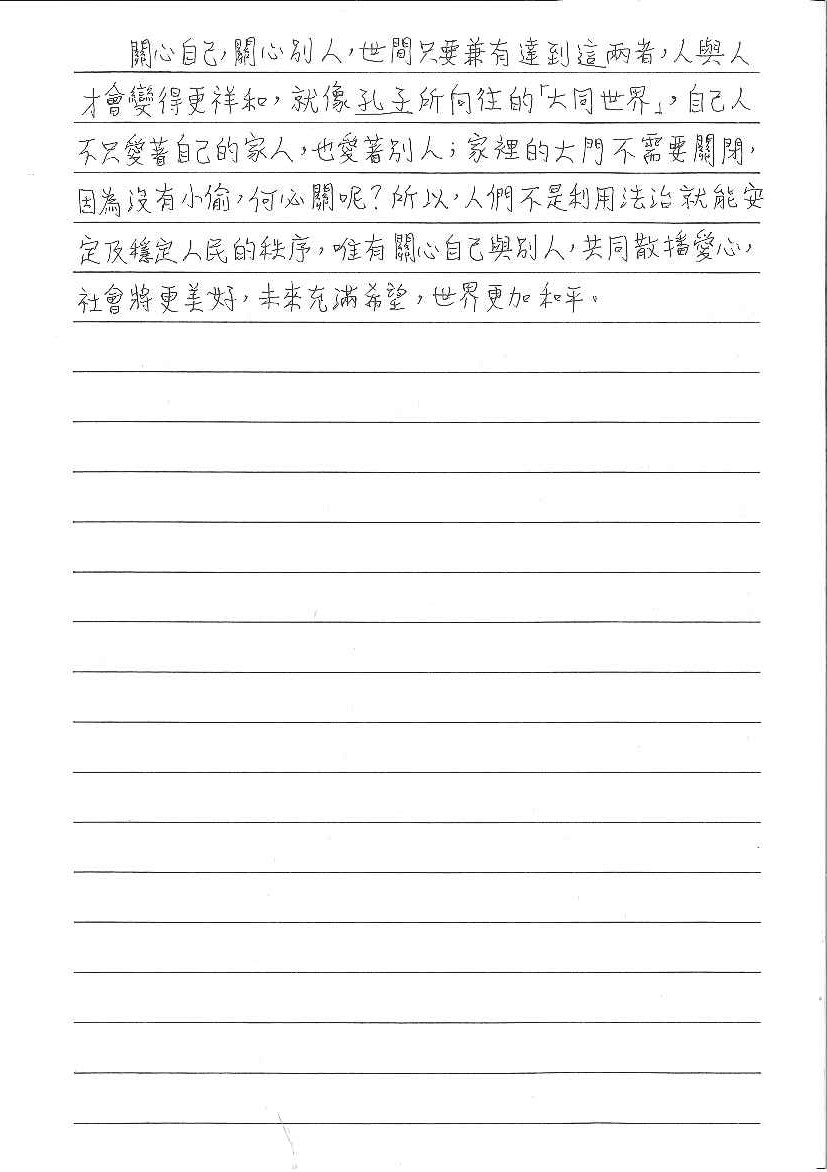 關心自己,關心別人,世間只要兼有達到這兩者,人與人
才會變得更祥和,就像孔子所向往的「大同世界」,自己人
不只愛著自己的家人,也愛著別人;家裡的大門不需要關閉,
因為沒有小偷,何必關呢?所以,人們不是利用法治就能安
定及穩定人民的秩序,唯有關心自己與別人,共同散播愛心,
社會將更美好,未來充滿希望,世界更加和平。